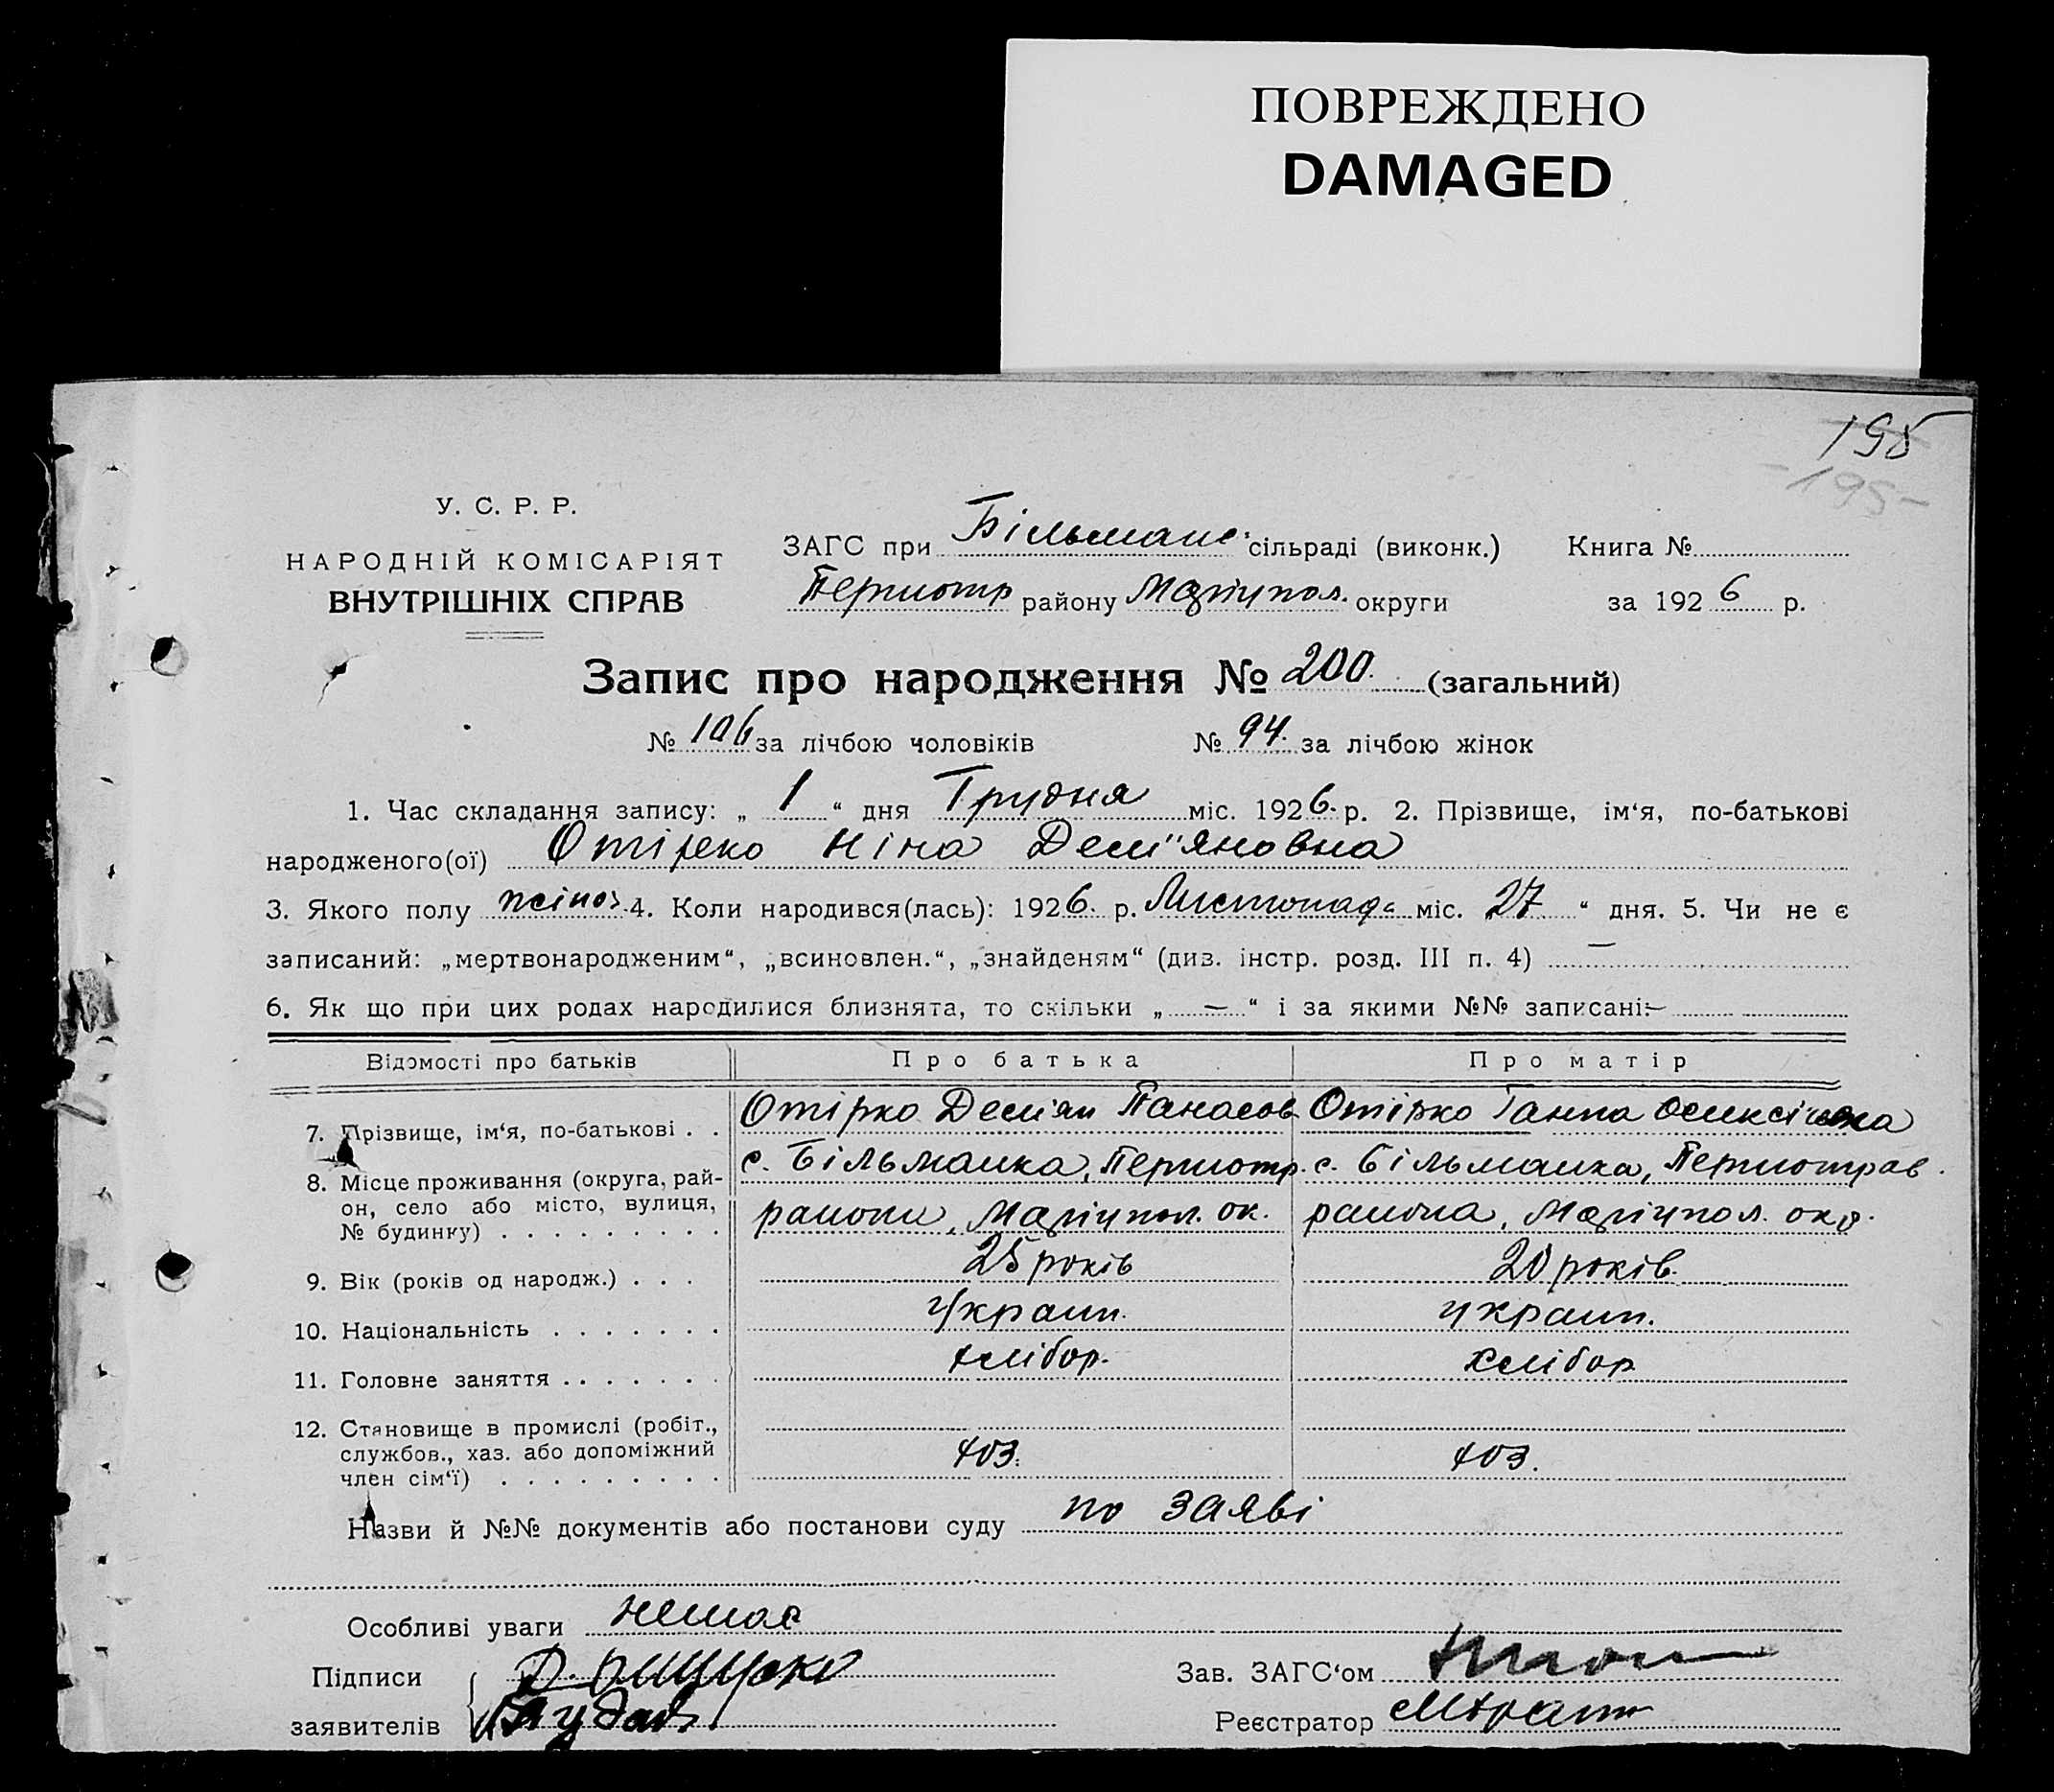 ПОВРЕЖДЕНО
DAMAGED
195
-195-
У. С. Р. Р.
НАРОДНІЙ КОМІСАРІЯТ
ВНУТРІШНІХ СПРАВ
ЗАГС при Більманс. сільраді (виконк.) Книга №
Першотр району Маріупол. округи за 1926 р.
Запис про народження № 200 (загальний)
№ 106 за лічбою чоловіків № 94. за лічбою жінок
1. Час складання запису: „ 1 “ дня Грудня міс. 1926. р. 2. Прізвище, ім‘я, по-батькові
народженого(ої) Отірко Ніна Дем"яновна
3. Якого полу жіноч. 4. Коли народився(лась): 1926. р. Листопада міс. „27 “ дня. 5. Чи не є
записаний: „мертвонародженим“, „всиновлен.“, „знайденям“ (див. інстр. розд. III п. 4) —
6. Як що при цих родах народилися близнята, то скільки „ — “ і за якими №№ записані: —
Відомості про батьків Про батька Про матір
7. Прізвище, ім‘я, по-батькові . . Отірко Деміян Панасов Отірко Ганна Олексіївна
8. Місце проживання (округа, рай- с. Більманка, Першотр. с. Більманка, Першотрав.
он, село або місто, вулиця, района, Маріупол. ок. района, Маріупол. окр.
№ будинку) . . . . . . . . .
9. Вік (років од народж.) . . . 25 років 20 років.
10. Національність . . . . . . . Украін. Украін.
11. Головне заняття . . . . . . . хлібор. хлібор
12. Становище в промислі (робіт.,
службов., хаз. або допоміжний хоз. хоз.
член сім‘ї) . . . . . . . . .
Назви й №№ документів або постанови суду по заяві
Особливі уваги немає
Підписи Зав. ЗАГС‘ом
заявителів Реєстратор